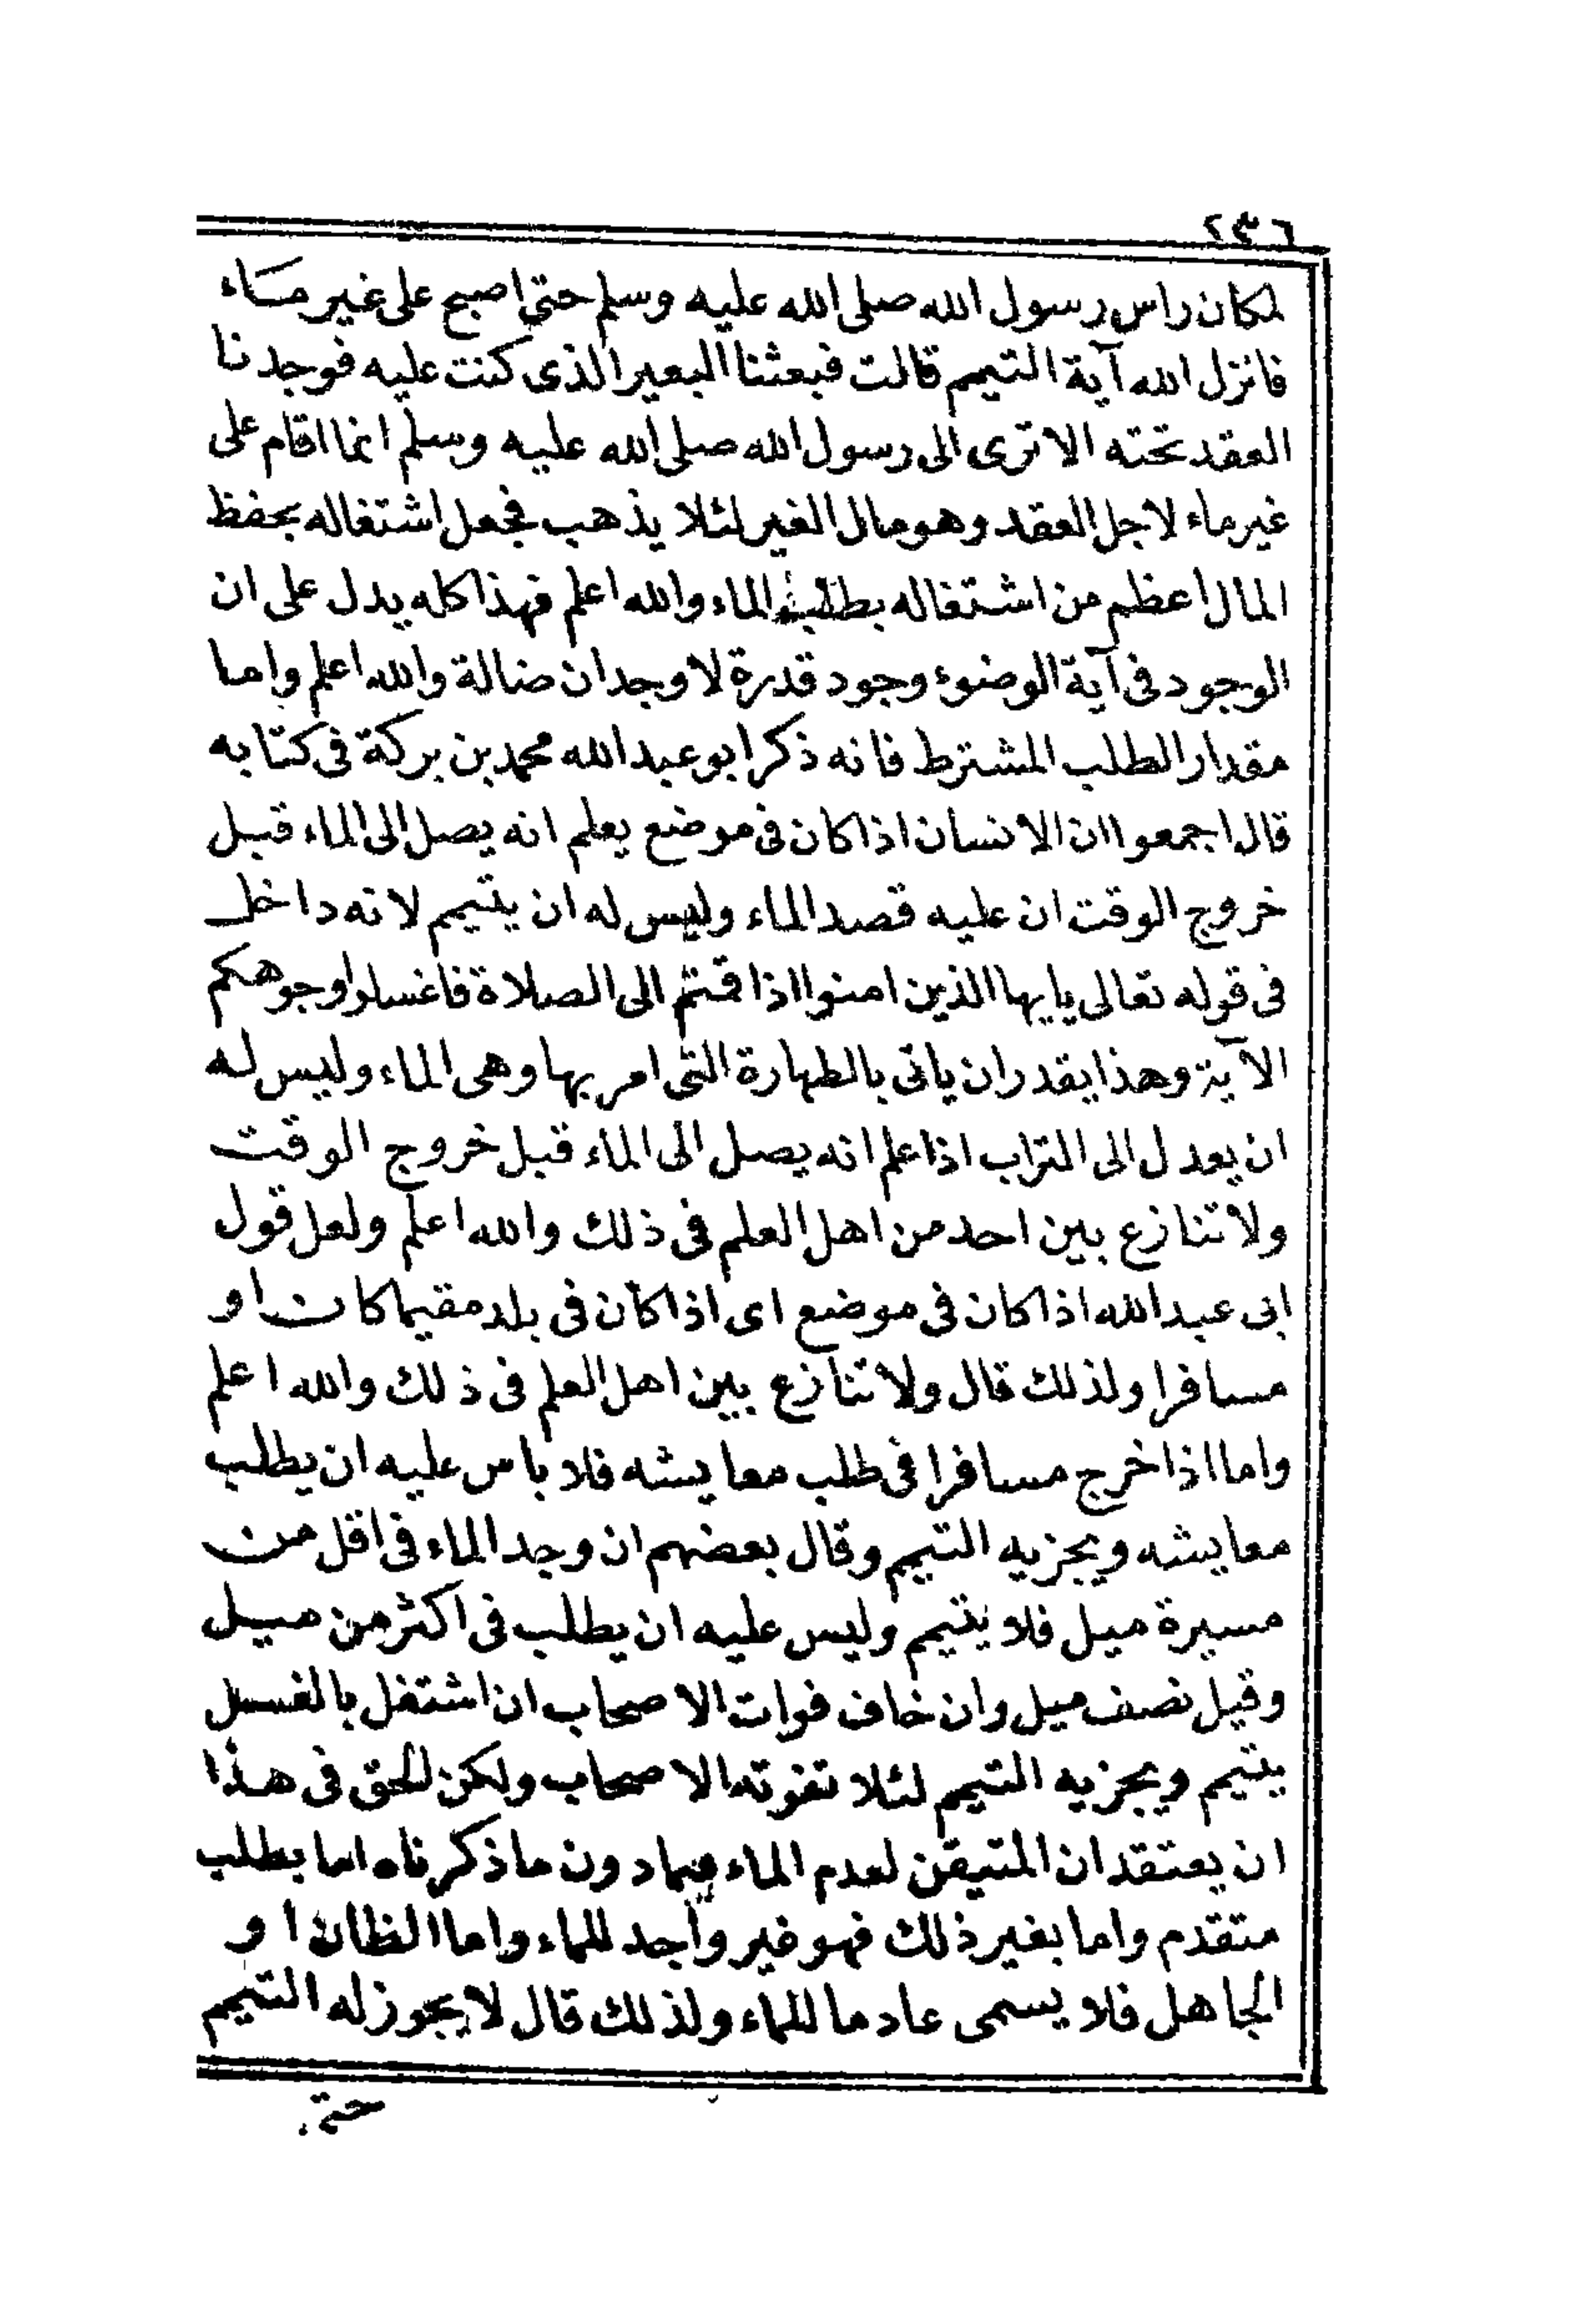 ٢٣٦
لمكان راس رسول الله صلى الله عليه وسلم حتى اصبح على غير ماء
فانزل الله آية التيمم قالت فبعثنا البعير الذى كنت عليه فوجدنا
العقد تحته الا ترى الى رسول الله صلى الله عليه وسلم انما اقام على
غير ماء لاجل العقد وهو مال الغير لئلا يذهب فجعل اشتغاله بحفظ
المال اعظم من اشتغاله بطلب الماء والله اعلم فهذا كله يدل على ان
الوجود فى آية الوضوء وجود قدرة لا وجدان ضالة والله اعلم واما
مقدار الطلب المشترط فانه ذكر ابو عبد الله محمد بن بركة فى كتابه
قال اجمعوا ان الانسان اذا كان فى موضع يعلم انه يصل الى الماء قبل
خروج الوقت ان عليه قصد الماء وليس له ان يتيمم لانه داخل
فى قوله تعالى يايها الذين امنوا اذا قمتم الى الصلاة فاغسلوا وجوهكم
الآية وهذا يقدر ان ياتى بالطهارة التى امر بها وهى الماء وليس له
ان يعدل الى التراب اذا علم انه يصل الى الماء قبل خروج الوقت
ولا تنازع بين احد من اهل العلم فى ذلك والله اعلم ولعل قول
ابى عبد الله اذا كان فى موضع اى اذا كان فى بلد مقيما كان او
مسافرا ولذلك قال ولا تنازع بين اهل العلم فى ذلك والله اعلم
واما اذا خرج مسافرا فى طلب معايشه فلا باس عليه ان يطلب
معايشه ويجزيه التيمم وقال بعضهم ان وجد الماء فى اقل من
مسيرة ميل فلا يتيمم وليس عليه ان يطلب فى اكثر من ميل
وقيل نصف ميل وان خاف فوات الاصحاب ان اشتغل بالغسل
يتيمم ويجزيه التيمم لئلا تفوته الاصحاب ولكن الحق فى هذا
ان يعتقد ان المتيقن لعدم الماء فيما دون ما ذكرناه اما بطلب
متقدم واما بغير ذلك فهو غير واجد للماء واما الظان او
الجاهل فلا يسمى عادما للماء ولذلك قال لا يجوز له التيمم
حتى